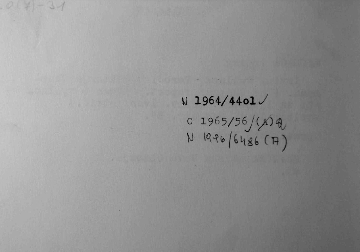 N 1964/4401✓
C 1965/56/(A)
N 1996/6486 (A)